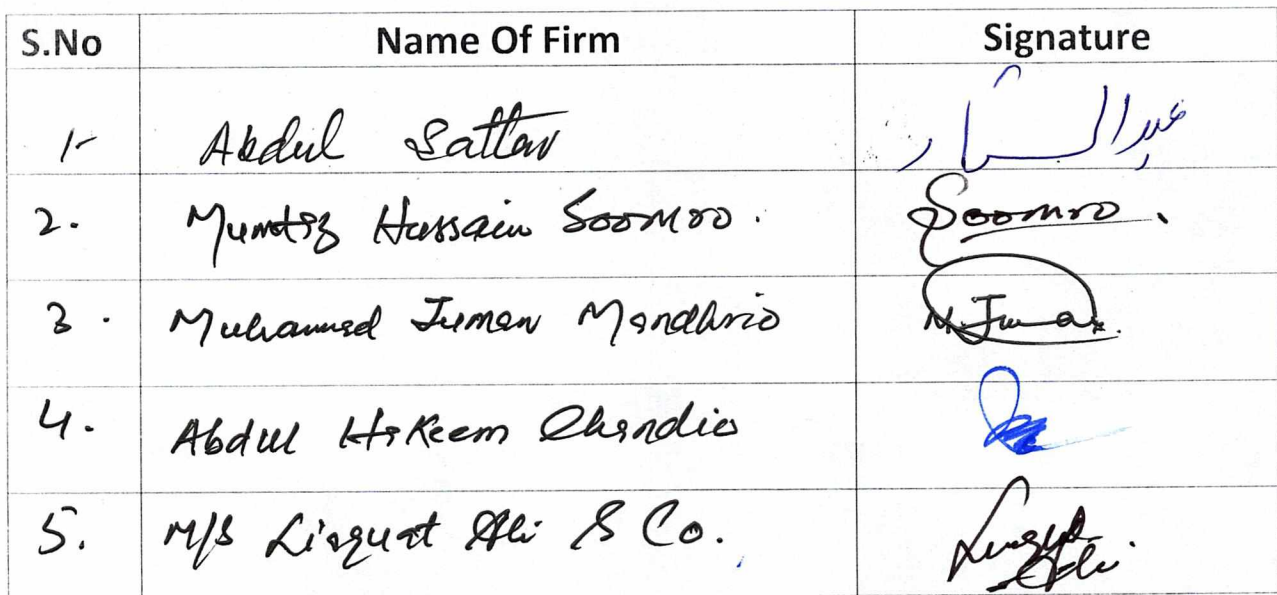 S.No Name Of Firm Signature
1- Abdul Sattar عبدالستار
2. Mumtaz Hussain Soomro. Soomro.
3. Muhammad Juman Mandhrio M. Juman.
4. Abdul Hakeem Chandio
5. M/S Liaquat Ali & Co. Liaquat Ali